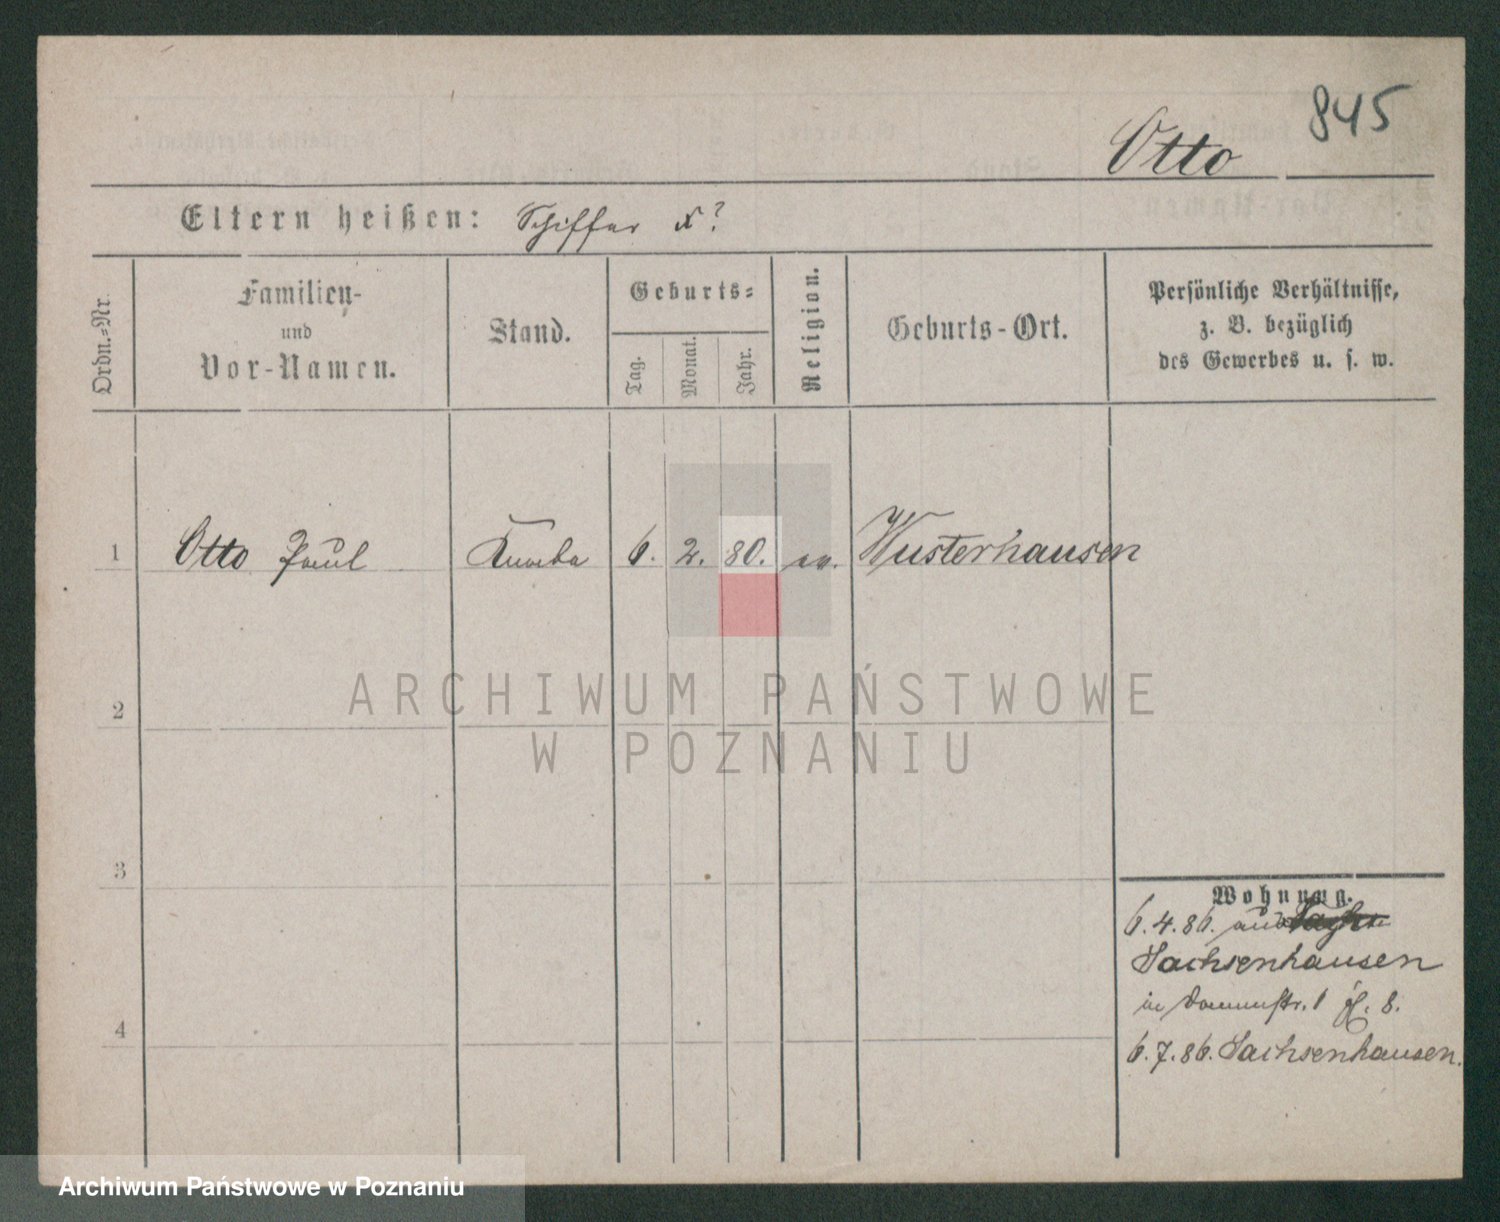 845
Otto
Eltern heißen: Schiffer x?
Ordn.-Nr.
Familien-
und
Vor-Namen.
Stand.
Geburts-
Tag.
Monat.
Jahr.
Religion.
Geburts-Ort.
Persönliche Verhältnisse,
z. B. bezüglich
des Gewerbes u. s. w.
1 Otto Paul Knabe 6. 2. 80. ev. Wusterhausen
2
3
4
Wohnung.
6.4.86. aus
Sachsenhausen
in Dammstr. 1 8.
6.7.86. Sachsenhausen.
ARCHIWUM PAŃSTWOWE
W POZNANIU
Archiwum Państwowe w Poznaniu